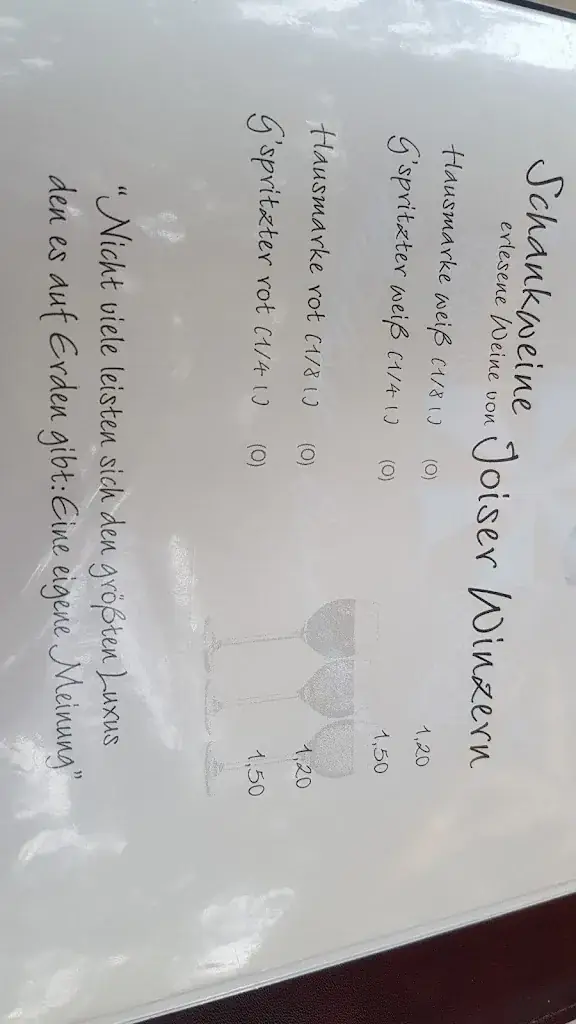 Schankweine
erlesene Weine von Joiser Winzern
Hausmarke weiß (1/8 l) (O) 1,20
G'spritzter weiß (1/4 l) (O) 1,50
Hausmarke rot (1/8 l) (O) 1,20
G'spritzter rot (1/4 l) (O) 1,50
"Nicht viele leisten sich den größten Luxus
den es auf Erden gibt: Eine eigene Meinung"